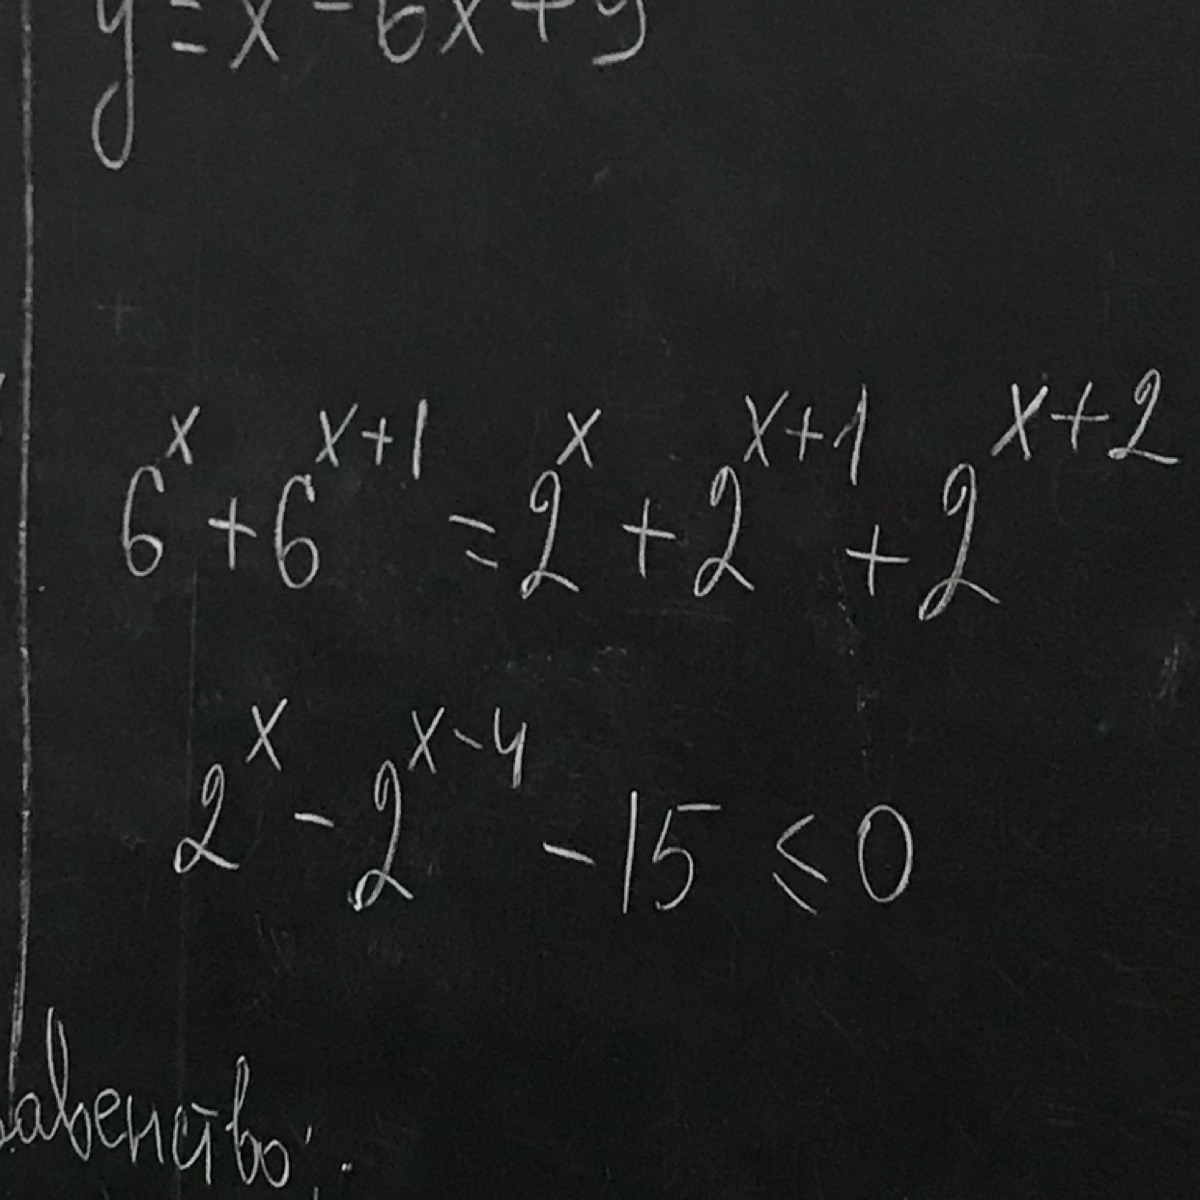 y = x - 6x + 9
6^x + 6^{x+1} = 2^x + 2^{x+1} + 2^{x+2}
2^x - 2^{x-4} - 15 ≤ 0
авенство: